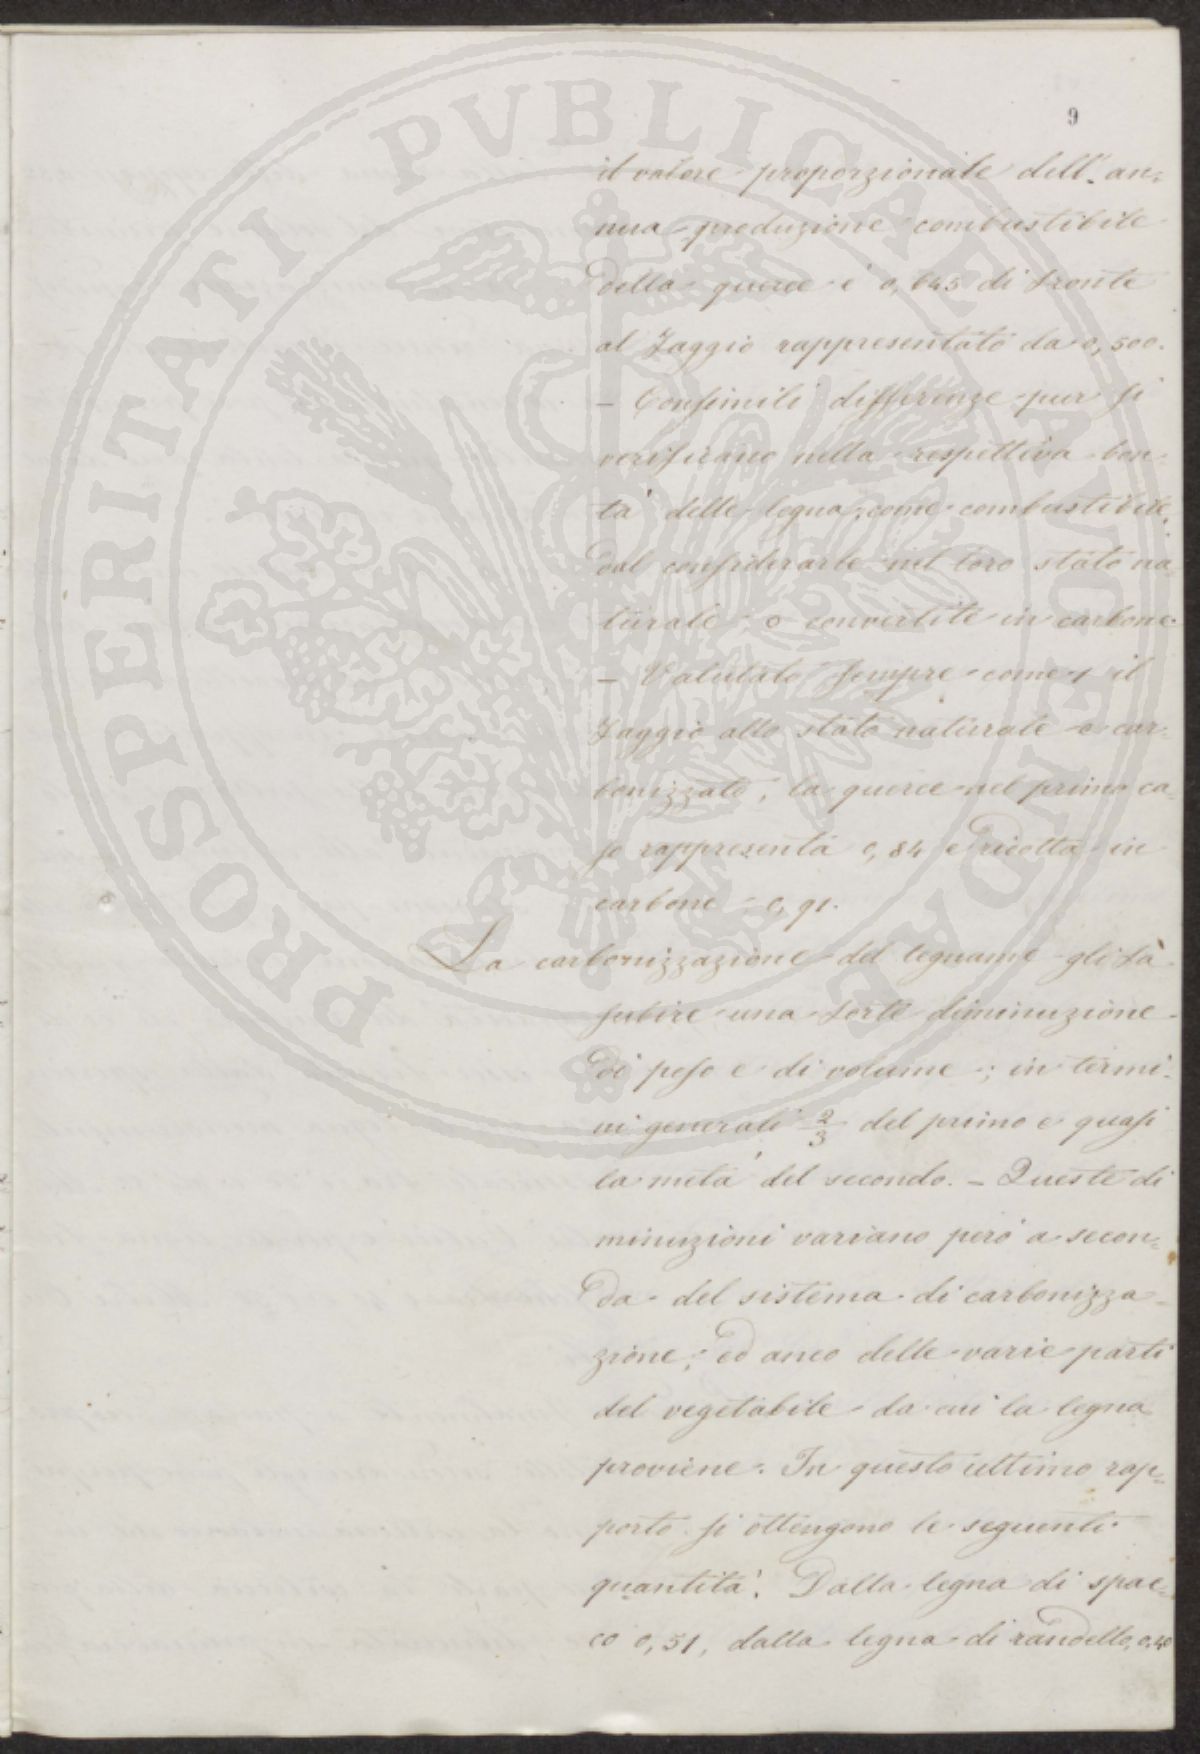 9
il valore proporzionale dell'an-
nua produzione combustibile
della querce è 0,645 di fronte
al Faggio rappresentato da 0,500.
– Consimili differenze pur si
verificano nella respettiva bon-
tà delle legna, come combustibile,
dal considerarle nel loro stato na-
turale o convertite in carbone.
– Valutato sempre come 1 il
Faggio allo stato naturale e car-
bonizzato, la querce nel primo ca-
so rappresenta 0,84 e ridotta in
carbone 0,91.
La carbonizzazione del legname gli fà
subire una forte diminuzione
di peso e di volume; in termi-
ni generali 2/3 del primo e quasi
la metà del secondo. – Queste di
minuzioni variano però a secon-
da del sistema di carbonizza-
zione, ed anco delle varie parti
del vegetabile da cui la legna
proviene. In questo ultimo rap-
porto si ottengono le seguenti
quantità. Dalla legna di spac-
co 0,51, dalla legna di randello, 0,40
PROSPERITATI PVBLICAE AVGENDAE